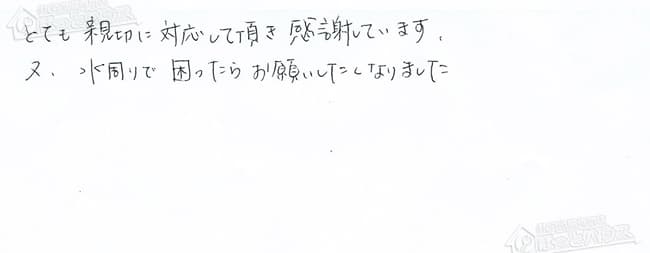 とても親切に対応して頂き感謝しています。
又、水周りで困ったらお願いしたくなりました